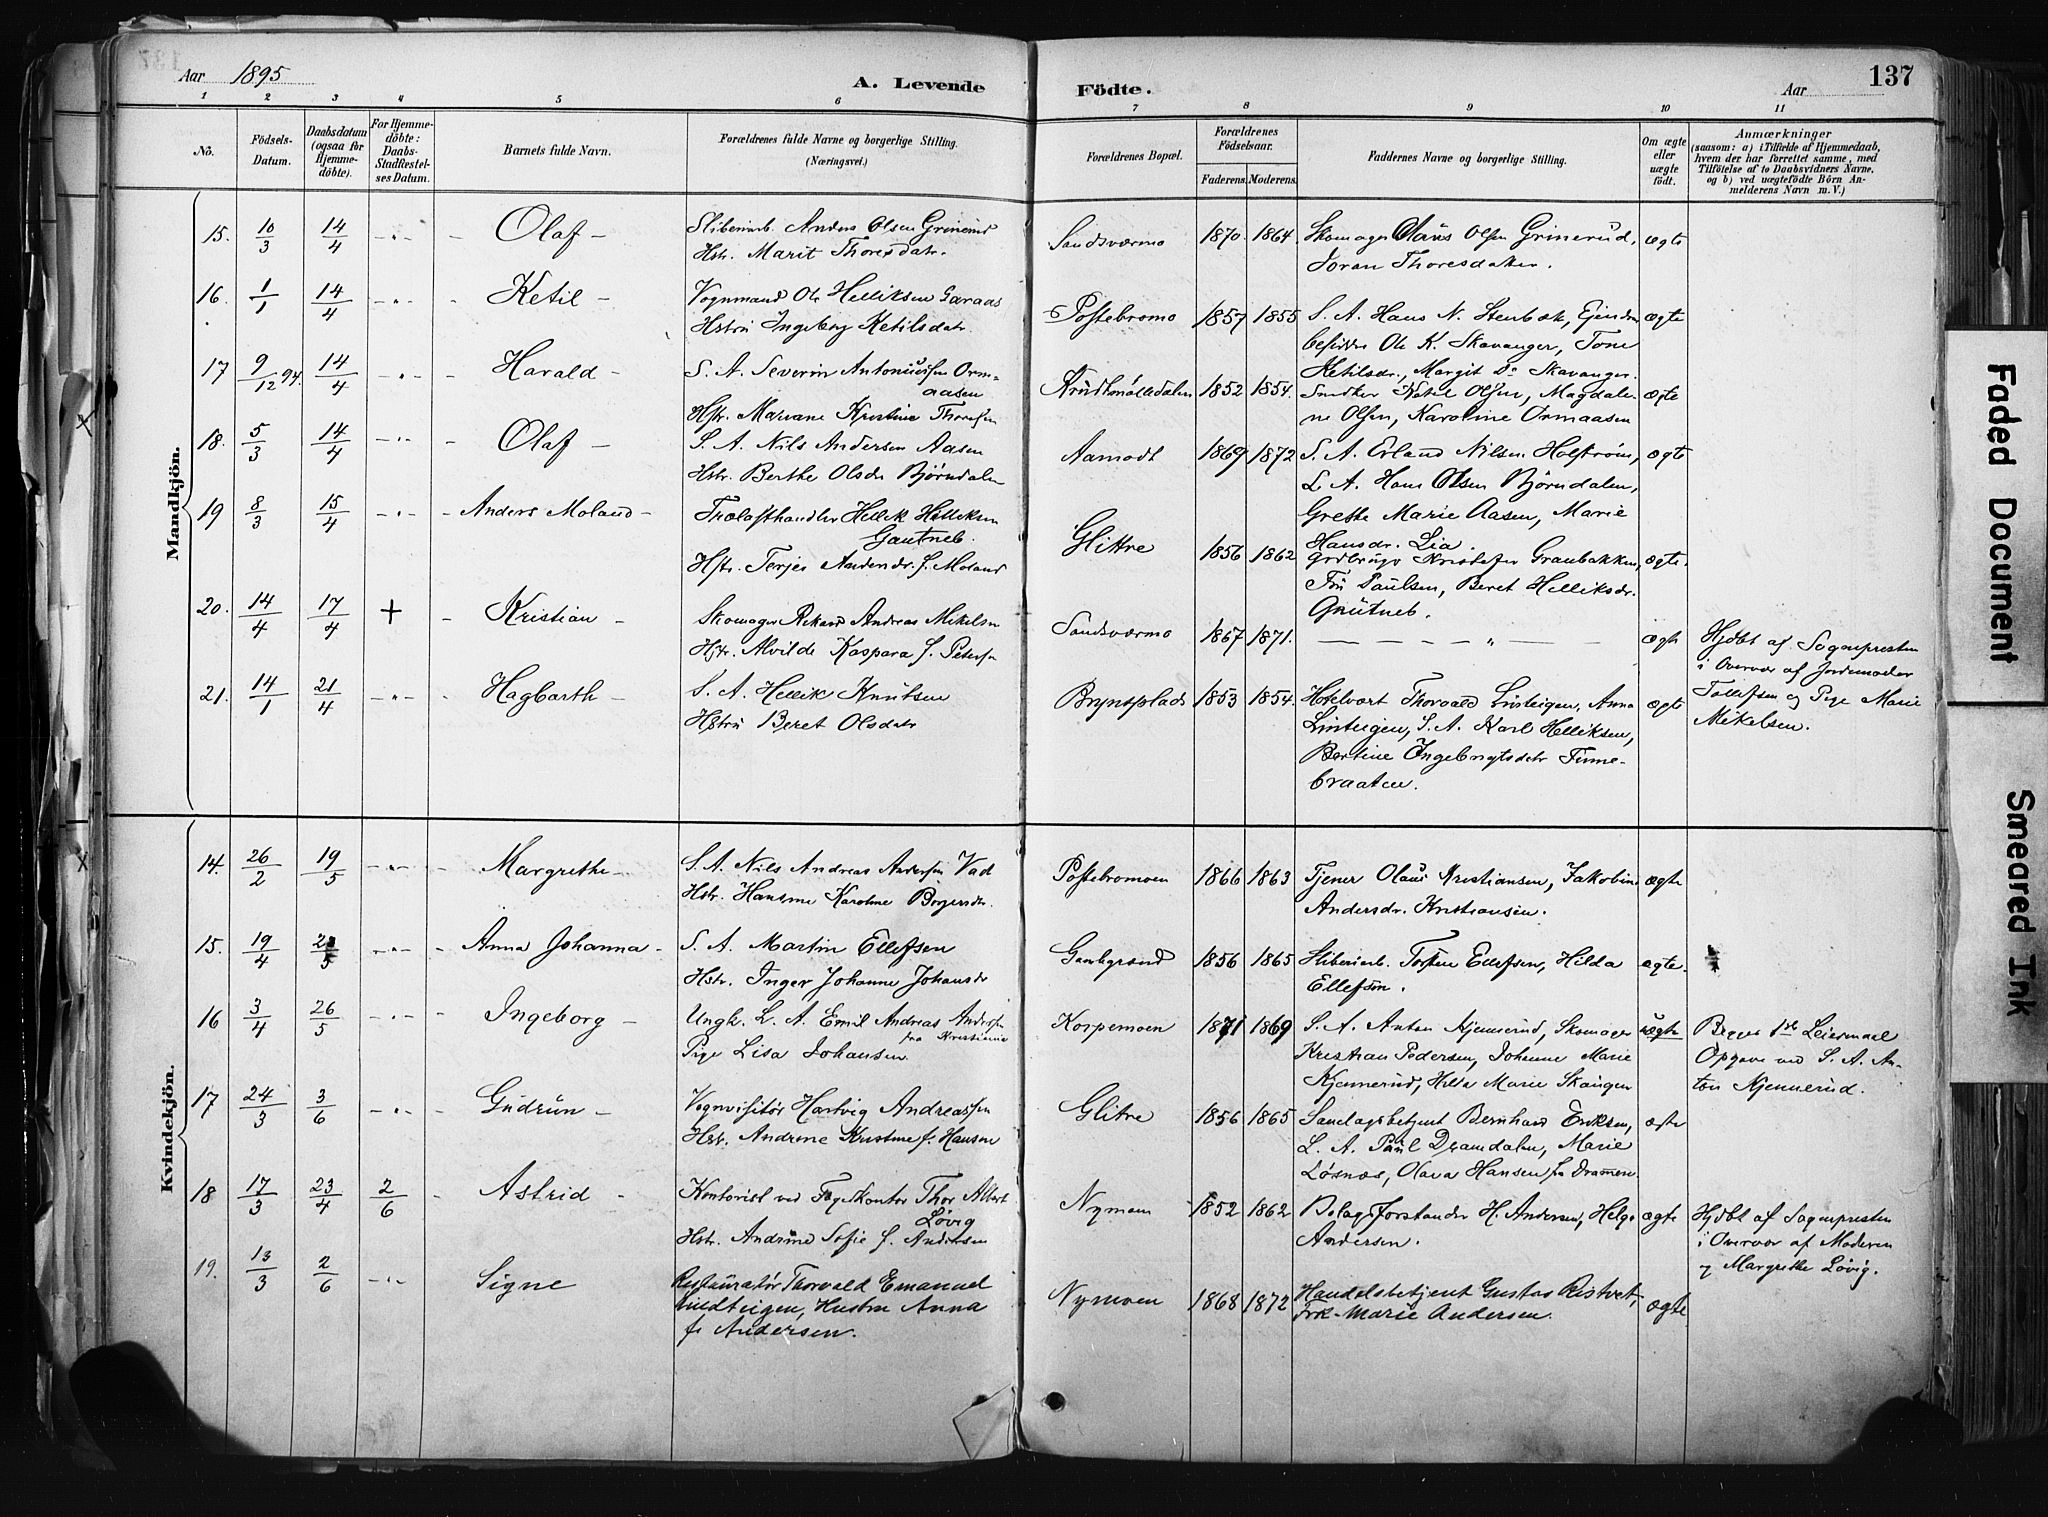 Aar 1895
A. Levende Födte.
Aar
137
1 2 3 4 5 6 7 8 9 10 11
No.
Födsels-Datum.
Daabsdatum (ogsaa for Hjemme-döbte).
For Hjemme-döbte: Daabs-Stadfæstel-ses Datum.
Barnets fulde Navn.
Forældrenes fulde Navne og borgerlige Stilling. (Næringsvei.)
Forældrenes Bopæl.
Forældrenes Födselsaar.
Faderens. Moderens.
Faddernes Navne og borgerlige Stilling.
Om ægte eller uægte født.
Anmærkninger
(saasom: a) i Tilfælde af Hjemmedaab, hvem der har forrettet samme, med Tilföielse af to Daabsvidners Navne, og b) ved uægtefödte Börn Anmelderens Navn m. V.)
Mandkjön.
15. 10/3 14/4 Olaf
Sliberiarb. Anders Olsen Grinerud
Hstr. Marit Thoresdatr.
Sandsværmo 1870. 1864. Skomager Olaus Olsen Grinerud, ægte
Joran Thoresdatter.
16. 1/1 14/4 Ketil
Vognmand Ole Helliksen Garaas
Hstru Ingeborg Ketilsdatr
Postebromo 1857 1855 S. A. Hans N. Stenbæk, Eiendom ægte
besidder Ole K. Skavanger, Tone
Ketilsdr., Margit Do Skavanger.
17 9/12 94. 14/4 Harald
S. A. Severin Antoniussen Orm-
aasen
Hstr. Mariane Kristine Thoresen
Krudtmølledalen 1852 1854. Snedker Nokel Olsen, Magdale- ægte
ne Olsen, Karoline Ormaasen
18. 5/3 14/4 Olaf
S. A. Nils Andersen Aasen
Hstr. Berthe Olsdr Bjørndalen
Aamodt 1869 1872 S. A. Erland Nilsen Holstrøm, ægte
L. A. Hans Olsen Bjørndalen,
Grethe Marie Aasen, Marie
Hansdr. Lia.
19 8/3 15/4 Anders Moland
Trælasthandler Hellik Helliksen
Gautneb.
Hstr. Terjer Andersdr. f. Moland
Glittre 1856 1862 Grdbruger Kristofer Granbakken, ægte.
Paulsen, Beret Helliksdr.
Gautneb.
20. 14/4 17/4 + Kristian
Skomager Rikard Andreas Mikelsen
Hstr. Alvilde Kaspara f. Petersen
Sandsværmo 1867 1871. ægte Hjdbt af Sognepresten
i Overvær af Jordemoder
Tollefsen og Pige Marie
Mikelsen.
21. 14/1 21/4 Hagbarth
S. A. Hellik Knutsen
Hstru Beret Olsdatr
Bryntsplads 1853 1854. Hotelvært Thorvald Linteigen, Anna ægte
Linteigen, S. A. Karl Helliksen,
Bertine Ingebrigtsdatr Finne-
braaten.
Kvindekjön.
14. 26/2 19/5 Margrethe
S. A. Nils Andreas Andersen Vad
Hstr. Hansine Karoline Børgersdr.
Postebromoen 1866 1863 Tjener Olaus Kristiansen, Jakobine ægte
Andersdr. Kristiansen.
15. 19/4 Anna Johanna
S. A. Martin Ellefsen
Hstr. Inger Johanne Johansdr
Gamlegrænd 1856 1865 Sliberiarb. Torsten Ellefsen, Hilda ægte.
Ellefsen.
16 3/4 26/5 Ingeborg
Ungk. L. A. Emil Andreas Andersen
fra Kristiania
Pige Lisa Johansen.
Korpemoen 1871 1869 S. A. Anton Kjennerud, Skomager uægte
Kristian Pedersen, Johanne Marie
Kjennerud, Hilda Marie Skaugen
Begges 1ste Leiermaal
Opgave ved S. A. An-
ton Kjennerud.
17 24/3 3/6 Gudrun
Vognvisitør Hartvig Andreassen
Hstr. Andrine Kristine f. Hansen
Glitre 1856 1865 Samlagsbetjent Bernhard Eriksen, ægte
L. A. Paul Dramdalen, Marie
Løsnæs, Olava Hansen fra Drammen.
18 17/3 23/4 2/6 Astrid
Kontorist ved Fogedkontor Thor Albert
Løvig
Hstr. Andrine Sofie f. Andersen
Nymoen 1852 1862 Bolagsforstander H. Andersen, Helga ægte
Andersen.
Hjdbt af Sognepresten
i Overvær af Moderen
og Margrethe Løvig.
19. 13/3 2/6 Signe
Restauratør Thorvald Emanuel
Lindteigen, Hustru Anna
f. Andersen.
Nymoen 1868 1872 Handelsbetjent Gustav Ristvet, ægte
Frk. Marie Andersen.
Faded Document
Smeared Ink